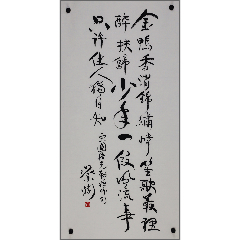 金鴨香消錦繡幃笙歌叢裡
醉扶歸少年一段風流事
只許佳人獨自知